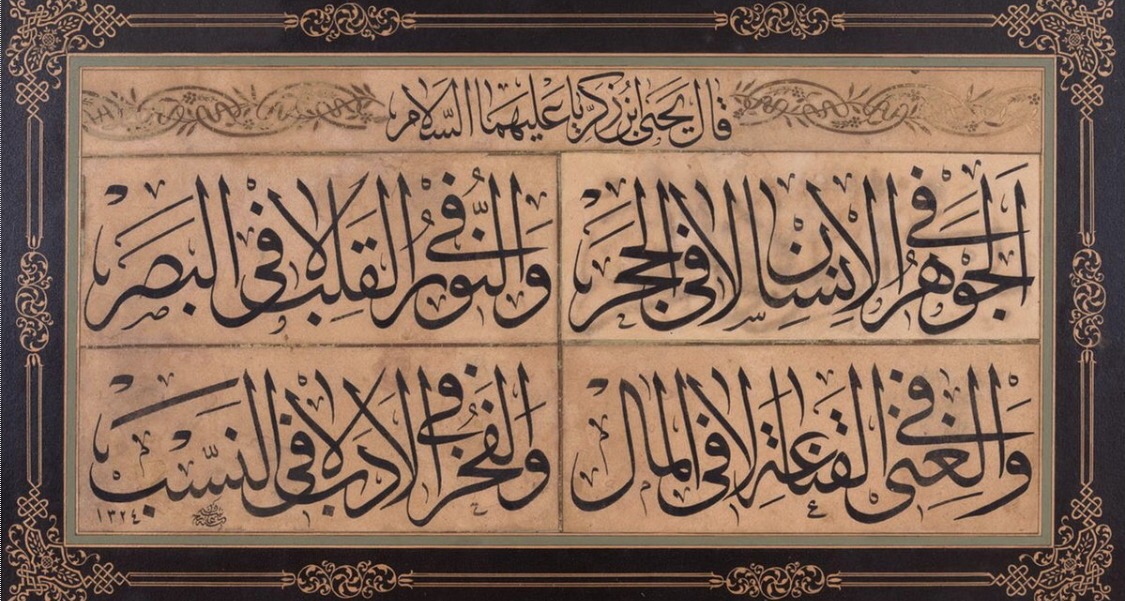 قال يحيى بن زكريا عليهما السلام
الجوهر في الإنسان لا في الحجر
والنور في القلب لا في البصر
والغنى في القناعة لا في المال
والفخر في الأدب لا في النسب
١٣٢٤